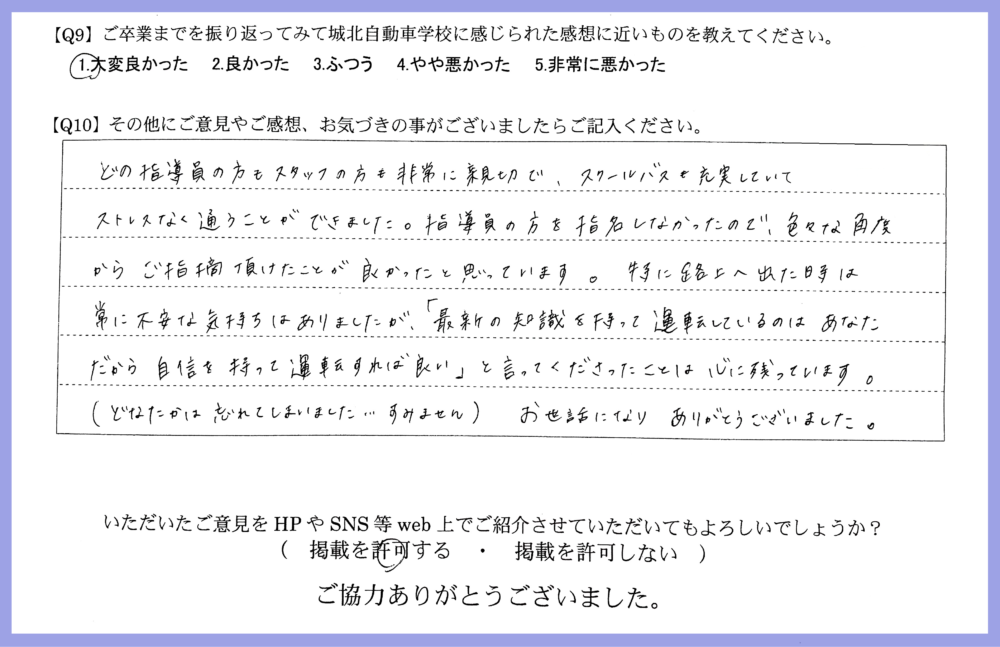 【Q9】ご卒業までを振り返ってみて城北自動車学校に感じられた感想に近いものを教えてください。
1.大変良かった 2.良かった 3.ふつう 4.やや悪かった 5.非常に悪かった
【Q10】その他にご意見やご感想、お気づきの事がございましたらご記入ください。
どの指導員の方もスタッフの方も非常に親切で、スクールバスも充実していて
ストレスなく通うことができました。指導員の方を指名しなかったので、色々な角度
からご指摘頂けたことが良かったと思っています。特に路上へ出た時は
常に不安な気持ちはありましたが、「最新の知識を持って運転しているのはあなた
だから自信を持って運転すれば良い」と言ってくださったことは心に残っています。
(どなたかは忘れてしまいました…すみません) お世話になりありがとうございました。
いただいたご意見をHPやSNS等web上でご紹介させていただいてもよろしいでしょうか？
( 掲載を許可する ・ 掲載を許可しない )
ご協力ありがとうございました。